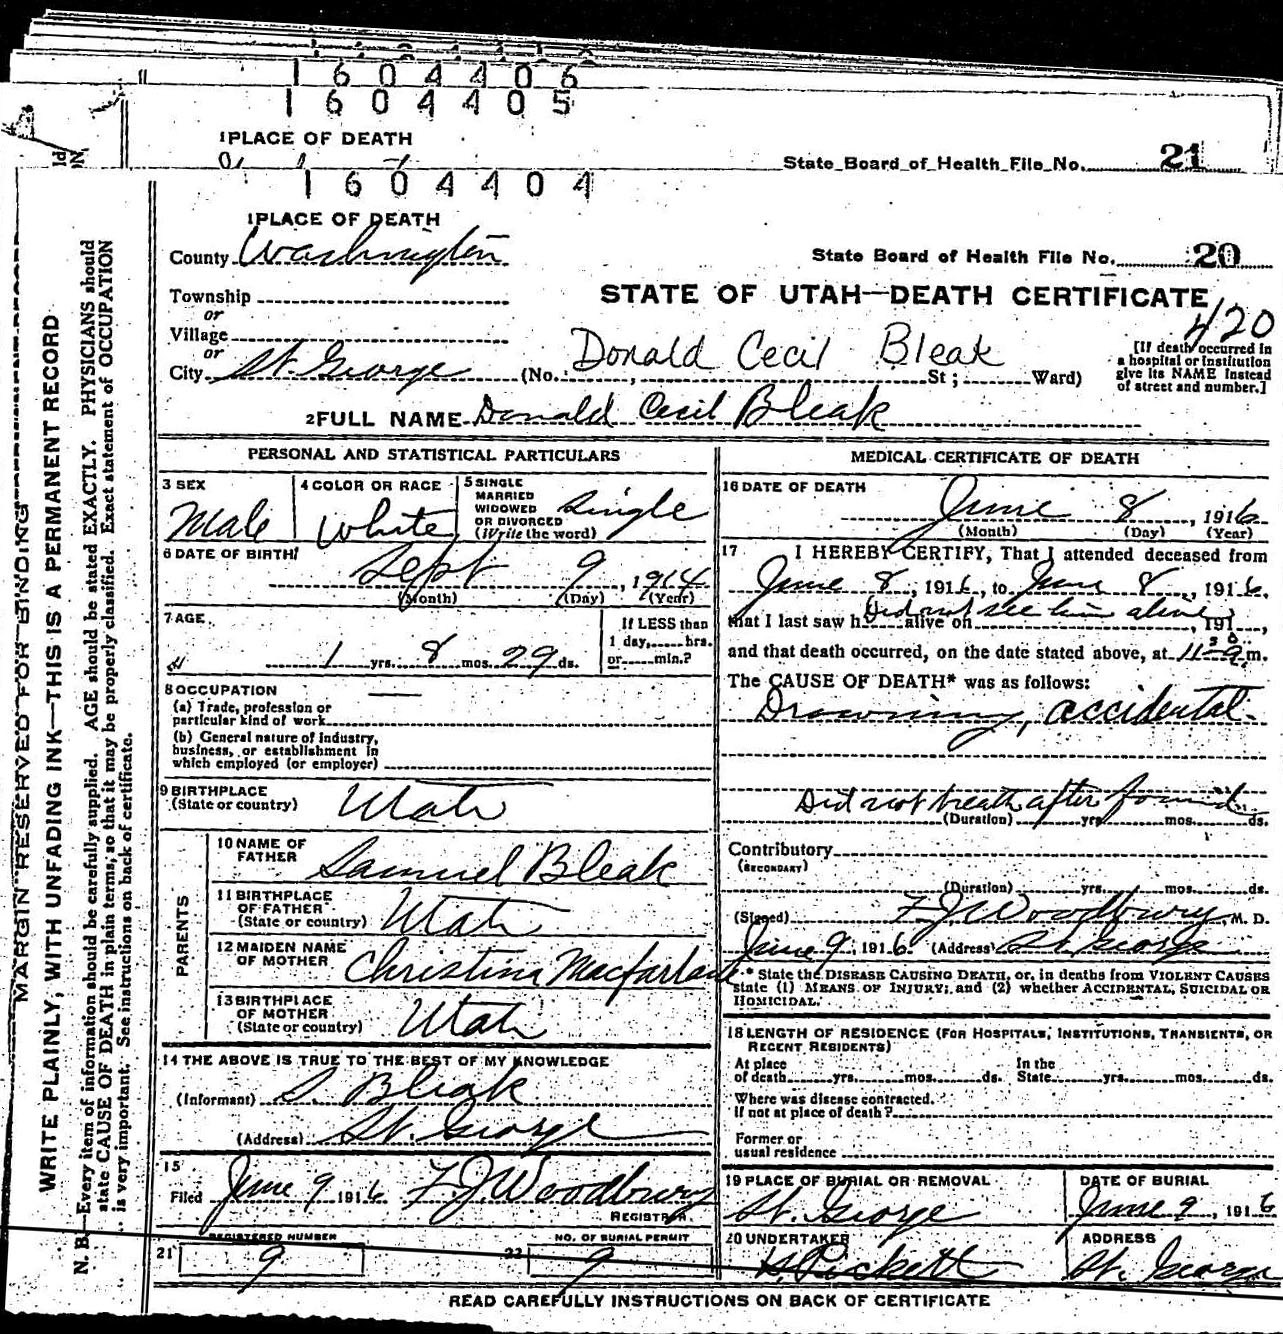 1604406
1604405
1 PLACE OF DEATH
State Board of Health File No. 21
1604404
1 PLACE OF DEATH
County Washington
State Board of Health File No. 20
Township
or
Village
or
City St. George
STATE OF UTAH—DEATH CERTIFICATE
420
Donald Cecil Bleak
(No. , St ; Ward)
[If death occurred in
a hospital or institution
give its NAME instead
of street and number.]
2 FULL NAME Donald Cecil Bleak
PERSONAL AND STATISTICAL PARTICULARS
3 SEX
Male
4 COLOR OR RACE
White
5 SINGLE
MARRIED
WIDOWED
OR DIVORCED
(Write the word)
Single
6 DATE OF BIRTH
Sept 9, 1914
(Month) (Day) (Year)
7 AGE
1 yrs. 8 mos. 29 ds.
If LESS than
1 day, hrs.
or min.?
8 OCCUPATION
(a) Trade, profession or
particular kind of work
(b) General nature of industry,
business, or establishment in
which employed (or employer)
9 BIRTHPLACE
(State or country) Utah
PARENTS
10 NAME OF
FATHER Samuel Bleak
11 BIRTHPLACE
OF FATHER
(State or country) Utah
12 MAIDEN NAME
OF MOTHER Christina Macfarlane
13 BIRTHPLACE
OF MOTHER
(State or country) Utah
14 THE ABOVE IS TRUE TO THE BEST OF MY KNOWLEDGE
(Informant) S. Bleak
(Address) St. George
15
Filed June 9 1916 F J Woodbury
REGISTRAR
REGISTERED NUMBER
21 9
NO. OF BURIAL PERMIT
22 9
MEDICAL CERTIFICATE OF DEATH
16 DATE OF DEATH
June 8, 1916
(Month) (Day) (Year)
17 I HEREBY CERTIFY, That I attended deceased from
June 8, 1916, to June 8, 1916,
Did not see him alive
that I last saw h alive on , 191 ,
and that death occurred, on the date stated above, at 11 a m.
The CAUSE OF DEATH* was as follows:
Drowning, accidental.
Did not breath after found
(Duration) yrs. mos. ds.
Contributory
(SECONDARY)
(Duration) yrs. mos. ds.
(Signed) F J Woodbury, M. D.
June 9, 1916 (Address) St. George
* State the DISEASE CAUSING DEATH, or, in deaths from VIOLENT CAUSES
state (1) MEANS OF INJURY; and (2) whether ACCIDENTAL, SUICIDAL OR
HOMICIDAL.
18 LENGTH OF RESIDENCE (FOR HOSPITALS, INSTITUTIONS, TRANSIENTS, OR
RECENT RESIDENTS)
At place
of death yrs. mos. ds.
In the
State yrs. mos. ds.
Where was disease contracted.
If not at place of death?
Former or
usual residence
19 PLACE OF BURIAL OR REMOVAL
St. George
DATE OF BURIAL
June 9, 1916
20 UNDERTAKER
Pickett
ADDRESS
St. George
READ CAREFULLY INSTRUCTIONS ON BACK OF CERTIFICATE
MARGIN RESERVED FOR BINDING
WRITE PLAINLY, WITH UNFADING INK—THIS IS A PERMANENT RECORD
N. B.—Every item of information should be carefully supplied. AGE should be stated EXACTLY. PHYSICIANS should
state CAUSE OF DEATH in plain terms, so that it may be properly classified. Exact statement of OCCUPATION
is very important. See instructions on back of certificate.